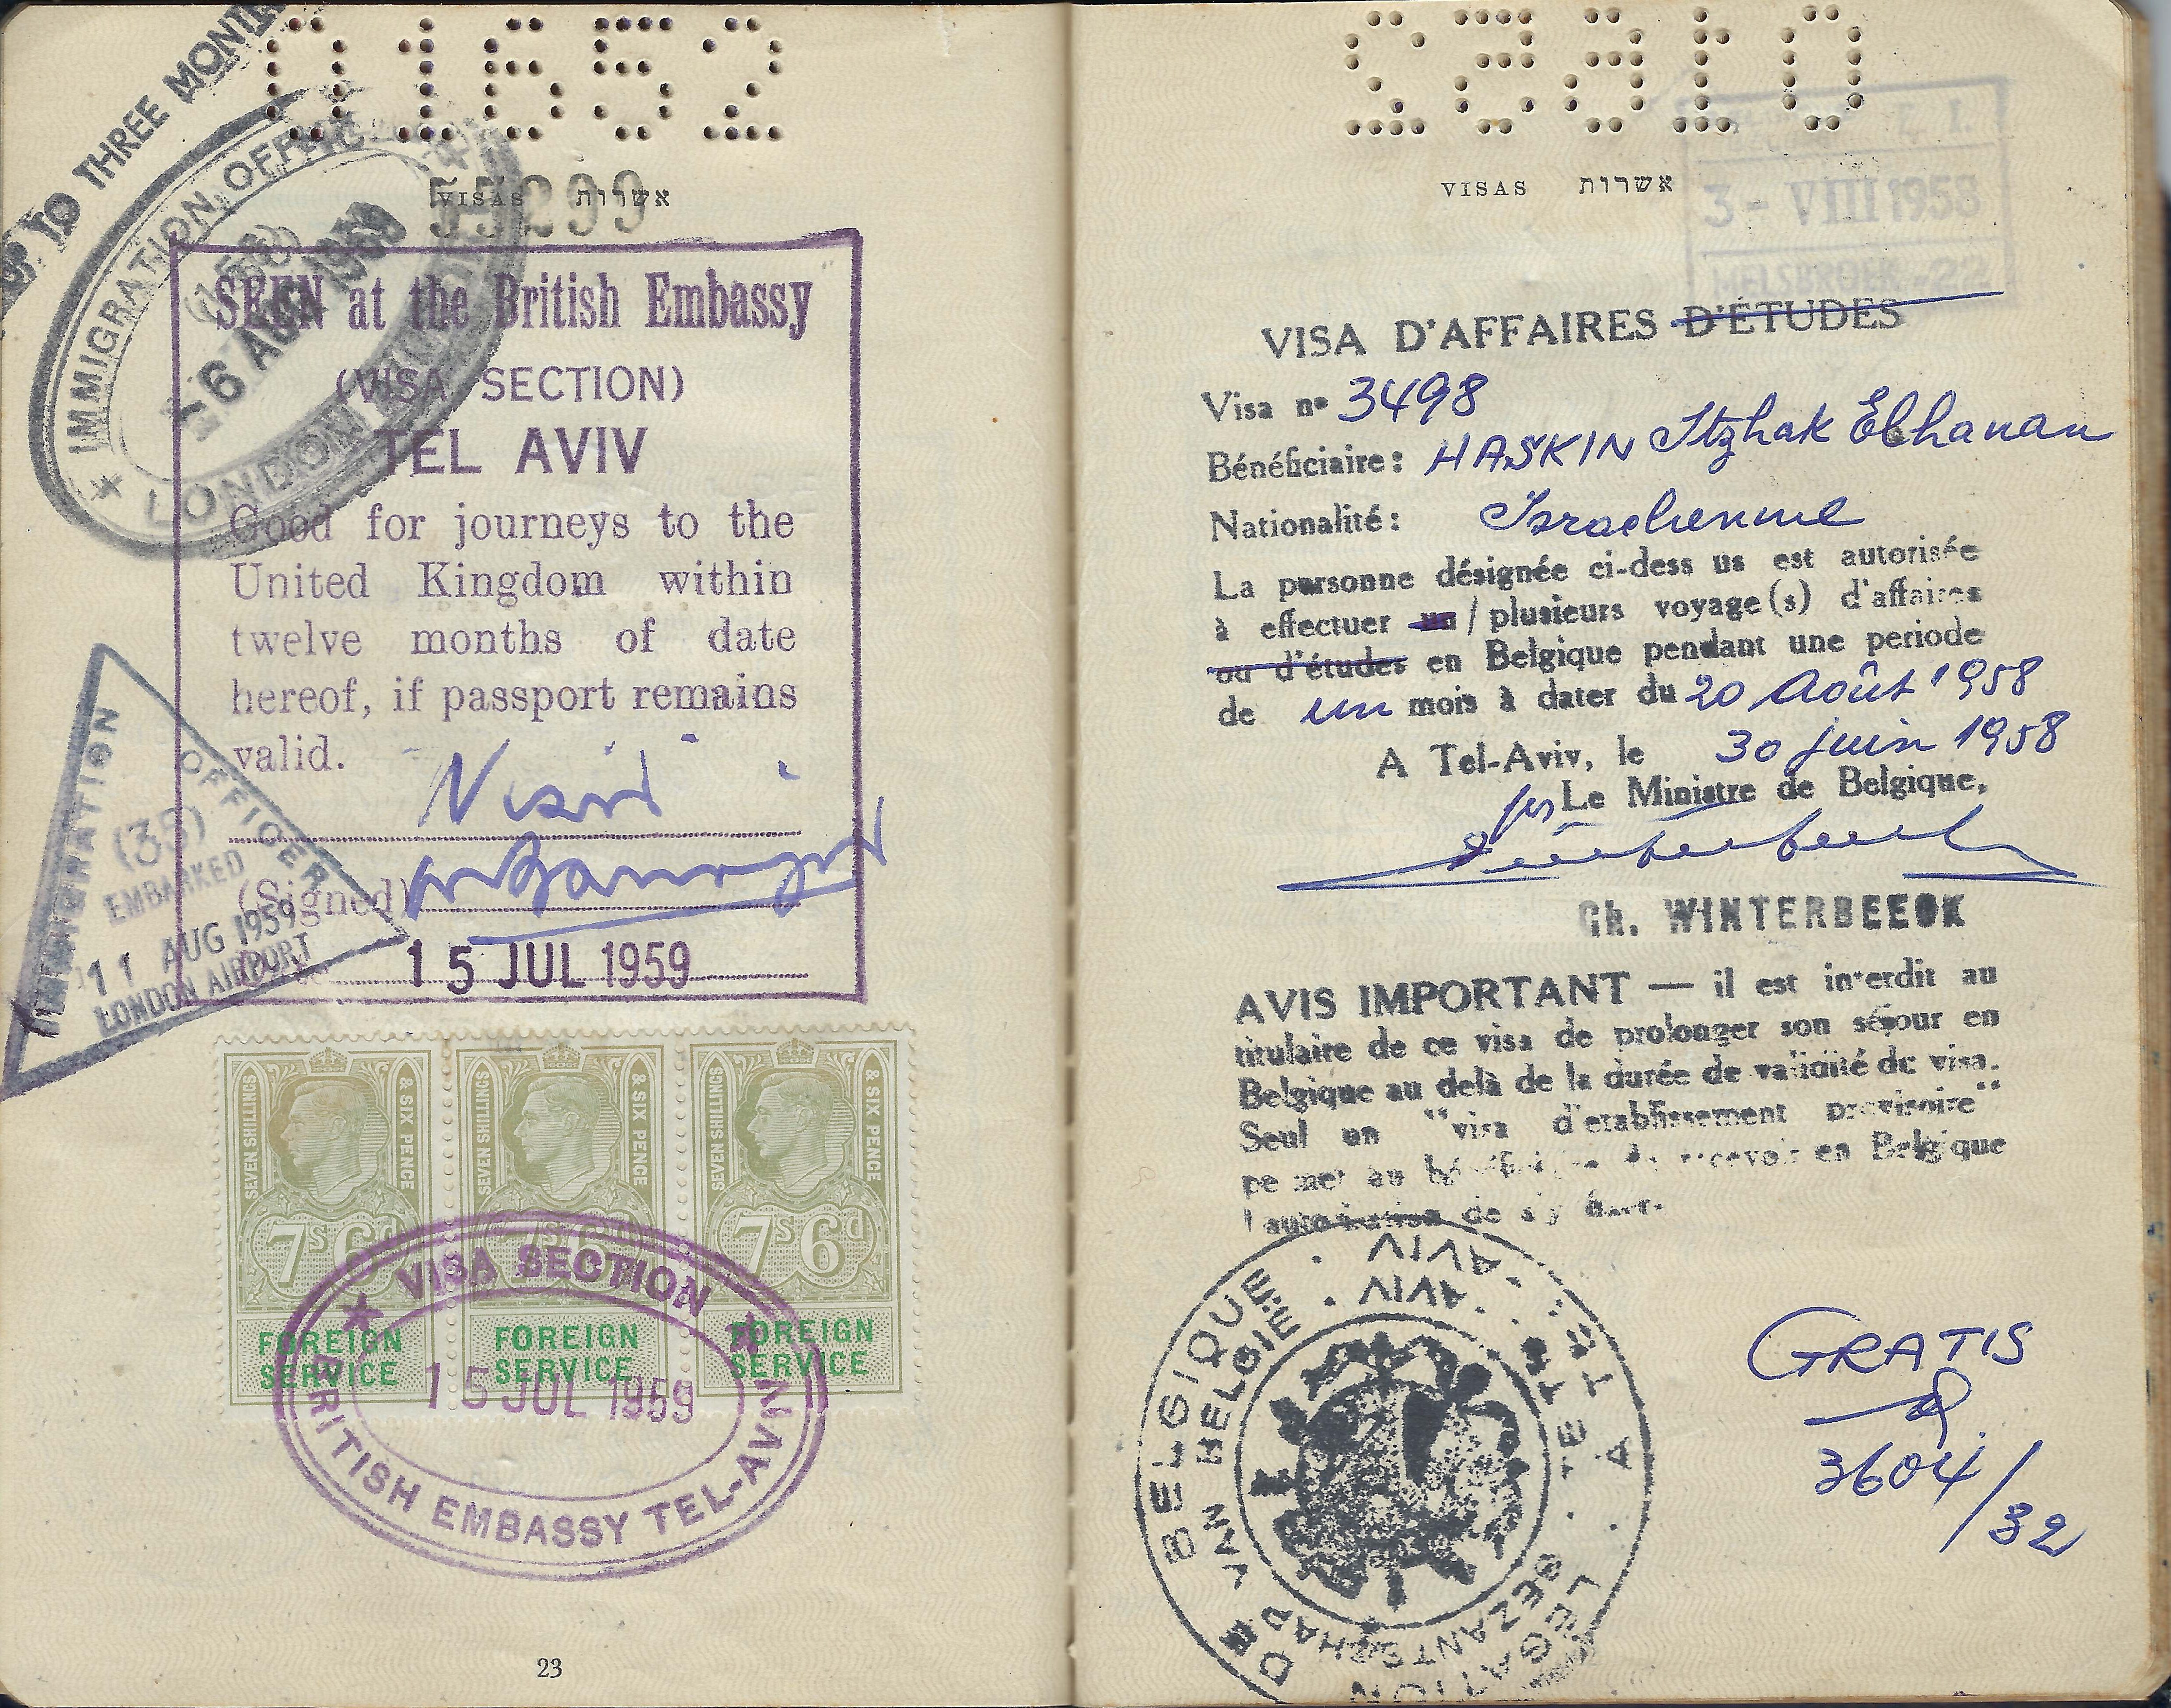 01652
UP TO THREE MONTHS
IMMIGRATION OFFICER
6 AUG 1959
LONDON
55299
VISAS אשרות
SEEN at the British Embassy
(VISA SECTION)
TEL AVIV
Good for journeys to the
United Kingdom within
twelve months of date
hereof, if passport remains
valid.
Visit
(Signed)
15 JUL 1959
IMMIGRATION OFFICER
(35)
EMBARKED
11 AUG 1959
LONDON AIRPORT
SEVEN SHILLINGS & SIX PENCE
7s 6d
FOREIGN
SERVICE
SEVEN SHILLINGS & SIX PENCE
7s 6d
FOREIGN
SERVICE
SEVEN SHILLINGS & SIX PENCE
7s 6d
FOREIGN
SERVICE
VISA SECTION
15 JUL 1959
BRITISH EMBASSY TEL-AVIV
23
01652
VISAS אשרות
3 - VIII 1958
MELSBROEK-22
VISA D'AFFAIRES D'ÉTUDES
Visa nº 3498
Bénéficiaire: HASKIN Itzhak Elhanan
Nationalité: Israelienne
La personne désignée ci-dess us est autorisée
à effectuer un / plusieurs voyage(s) d'affaires
ou d'études en Belgique pendant une periode
de un mois à dater du 20 Août 1958
A Tel-Aviv, le 30 juin 1958
Le Ministre de Belgique,
Ch. WINTERBEEOK
AVIS IMPORTANT — il est interdit au
titulaire de ce visa de prolonger son séjour en
Belgique au delà de la durée de validité du visa.
Seul un "visa d'etablissement provisoire"
permet au en Belgique
l'autorisation de
LEGATION DE BELGIQUE A TEL-AVIV
GEZANTSCHAP VAN BELGIË TE TEL-AVIV
GRATIS
3604/32